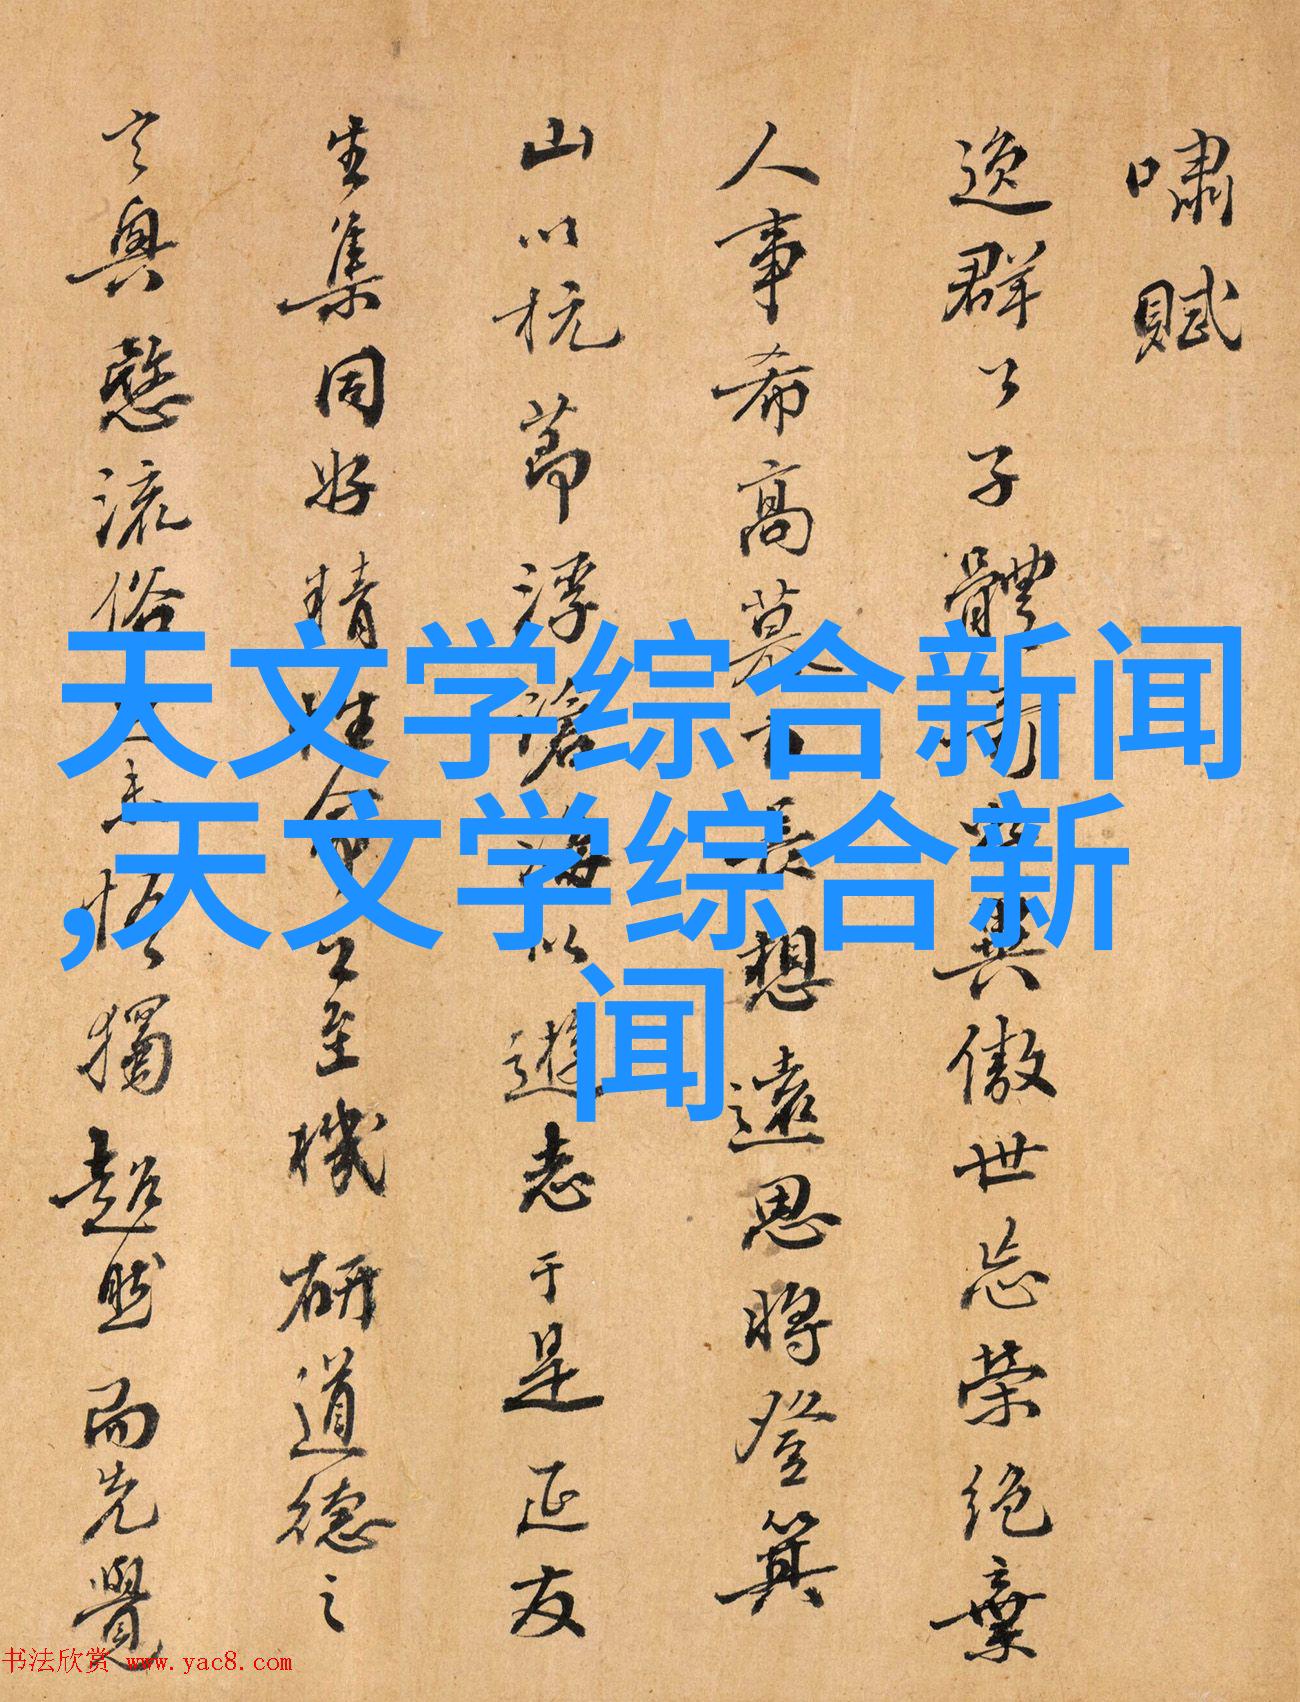 嘯賦
逸群公子體奇異傲世忘榮絕棄
人事希高慕古長想遠思將登箕
山以杭節浮滄海以遊志于是延友
生集同好精性命之至機研道德之
玄奧愍流俗之未悟獨超然而先覺
天文学综合新闻
,天文学综合新
闻
书法欣赏 www.yac8.com